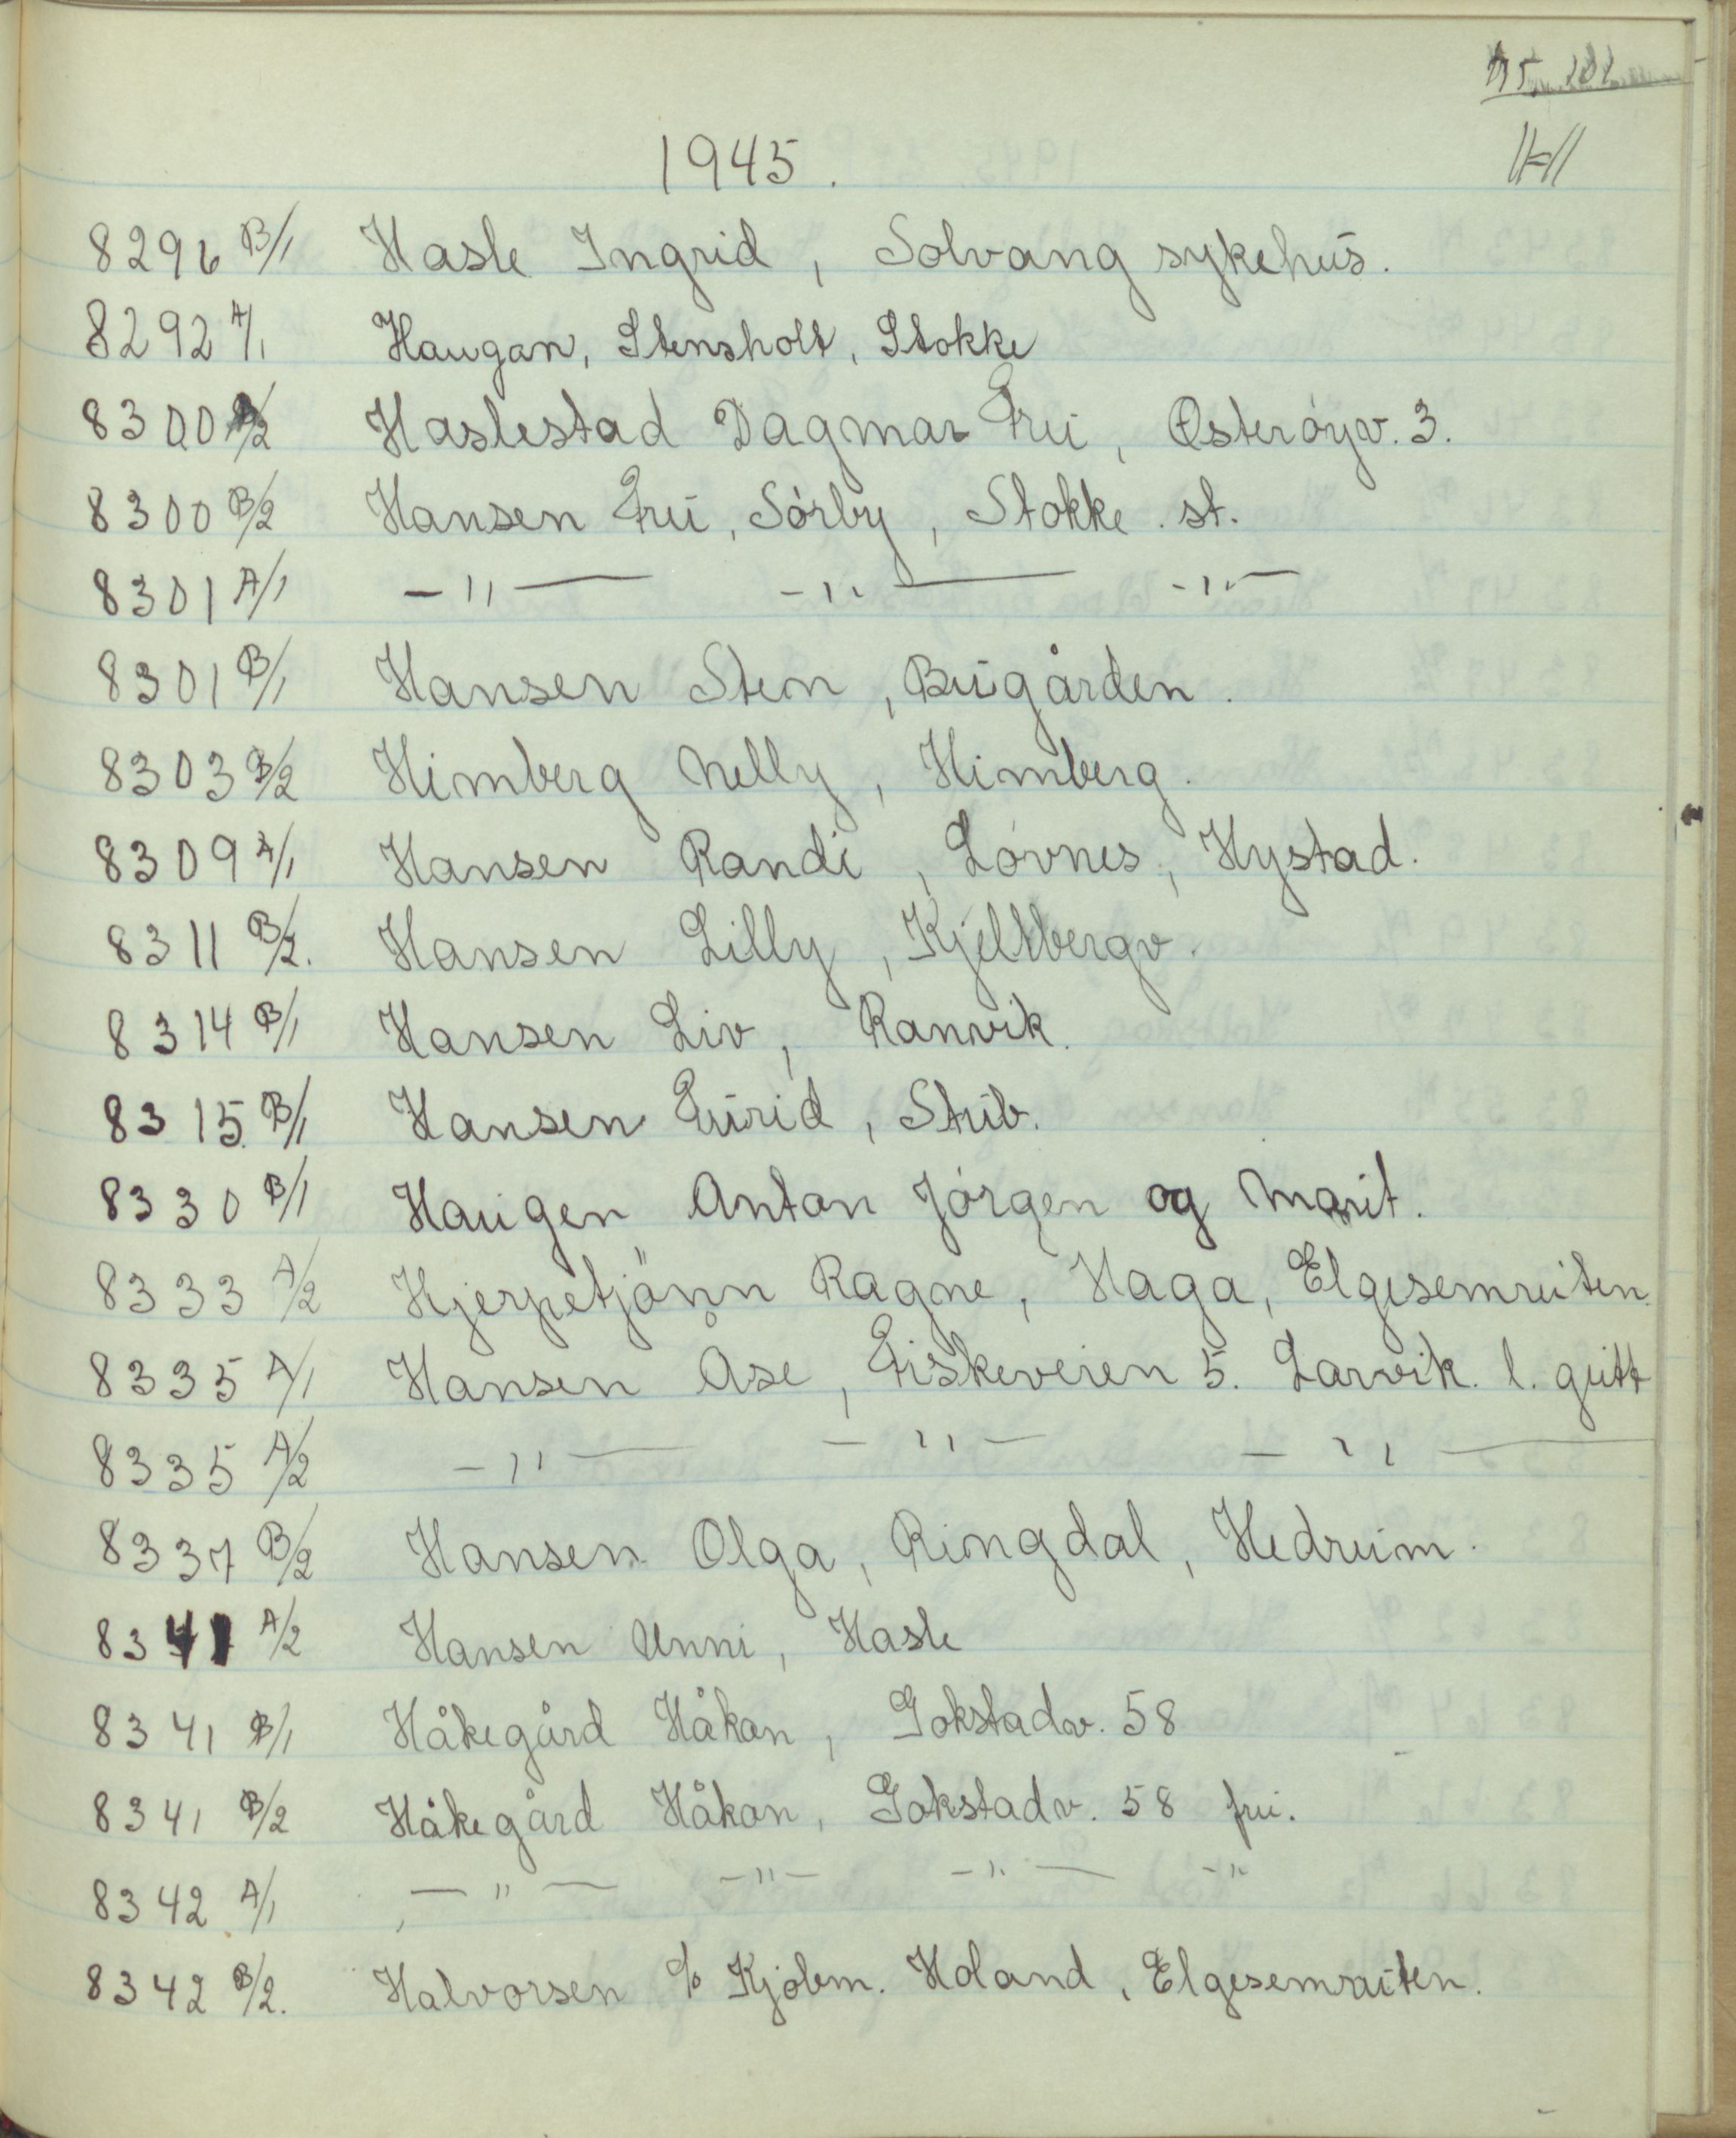 1945.
H
8296 B/1 Hasle Ingrid, Solvang sykehus.
8292 A/1 Haugan, Stensholt, Stokke
8300 A/2 Haslestad Dagmar Fru, Østerøyv. 3.
8300 B/2 Hansen Fru, Sørby, Stokke st.
8301 A/1 -"- -"- -"-
8301 B/1 Hansen Sten, Bugården.
8303 B/2 Himberg Nelly, Himberg.
8309 A/1 Hansen Randi, Løvnes, Hystad.
8311 B/2. Hansen Lilly, Kjellbergv.
8314 B/1 Hansen Liv, Ranvik.
8315. B/1 Hansen Turid, Stub.
8330 B/1 Haugen Anton Jørgen og Marit.
8333 A/2 Hjerpetjönn Ragne, Haga, Elgesemruten.
8335 A/1 Hansen Åse, Fiskeveien 5. Larvik. l. gutt
8335 A/2 -"- -"- -"-
8337 B/2 Hansen Olga, Ringdal, Hedrum.
8341 A/2 Hansen Unni, Hasle
8341 B/1 Håkegård Håkan, Gokstadv. 58
8341 B/2 Håkegård Håkan, Gokstadv. 58 fru.
8342 A/1 -"- -"- -"- -"
8342 B/2. Halvorsen c/o Kjøbm. Holand, Elgesemruten.